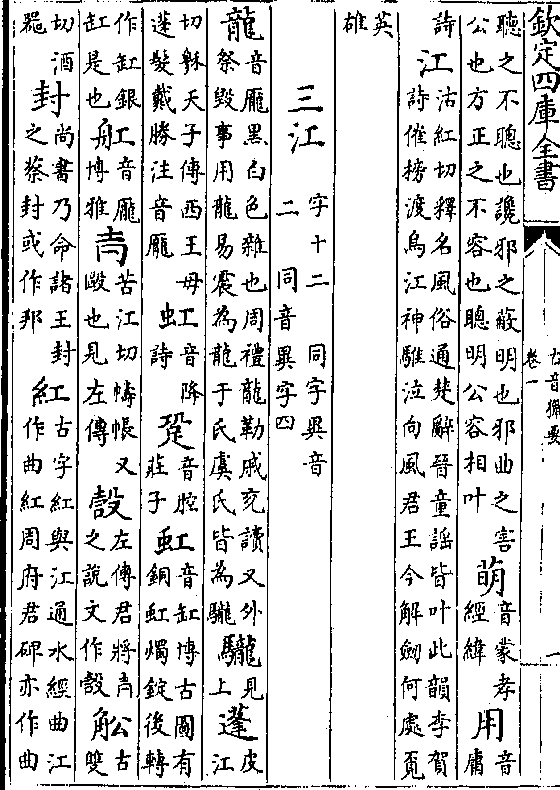 欽定四庫全書
古音獵要
卷一
聽之不聰也讒邪之蔽明也邪曲之害
公也方正之不容也聰明公容相叶
萌音蒙孝
經緯
用音
庸
詩
江沽紅切釋名風俗通楚辭晉童謠皆叶此韻李賀
詩催榜渡烏江神騅泣向風君王今解劒何處覓
英
雄
三江
字十二 同字異音
二 同音異字四
龍音厖黑白色雜也周禮龍勒戚充讀又外
祭毀事用龍易震為龍于氏虞氏皆為駹
駹見
上
蓬皮
江
切穌天子傳西王母
蓬髮戴勝注音厖
虹音降
詩
跫音腔
莊子
虹音缸博古圖有
銅虹燭錠後轉
作缸銀
缸是也
舡音厖
博雅
靑苦江切幬帳又
毆也見左傳
㱿左傳君將㱿
之說文作㱿
舩古
雙
切酒
器
封尚書乃命諸王封
之蔡封或作邦
紅古字紅與江通水經曲江
作曲紅周府君碑亦作曲